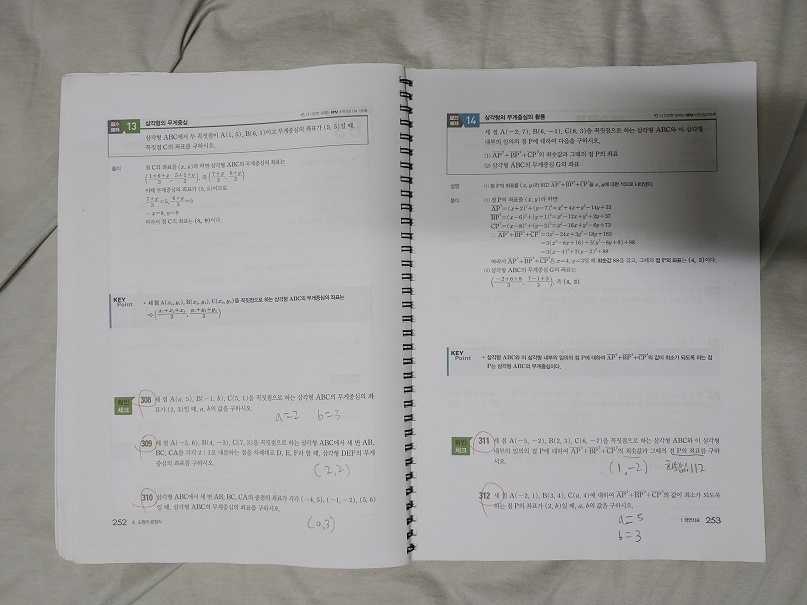 필수
예제
13
삼각형의 무게중심
삼각형 ABC에서 두 꼭짓점이 A(1, 5), B(6, 1)이고 무게중심의 좌표가 (5, 5)일 때,
꼭짓점 C의 좌표를 구하시오.
풀이
점 C의 좌표를 (x, y)라 하면 삼각형 ABC의 무게중심의 좌표는
(1+6+x/3, 5+1+y/3), 즉 (7+x/3, 6+y/3)
이때 무게중심의 좌표가 (5, 5)이므로
7+x/3=5, 6+y/3=5
∴ x=8, y=9
따라서 점 C의 좌표는 (8, 9)이다.
KEY
Point
• 세 점 A(x₁, y₁), B(x₂, y₂), C(x₃, y₃)을 꼭짓점으로 하는 삼각형 ABC의 무게중심의 좌표는
⇨ (x₁+x₂+x₃/3, y₁+y₂+y₃/3)
확인
체크
308 세 점 A(a, 5), B(-1, b), C(5, 1)을 꼭짓점으로 하는 삼각형 ABC의 무게중심의 좌
표가 (2, 3)일 때, a, b의 값을 구하시오.
a=2 b=3
309 세 점 A(-5, 6), B(4, -3), C(7, 3)을 꼭짓점으로 하는 삼각형 ABC에서 세 변 AB,
BC, CA를 각각 2 : 1로 내분하는 점을 차례대로 D, E, F라 할 때, 삼각형 DEF의 무게
중심의 좌표를 구하시오.
(2,2)
310 삼각형 ABC에서 세 변 AB, BC, CA의 중점의 좌표가 각각 (-4, 5), (-1, -2), (5, 6)
일 때, 삼각형 ABC의 무게중심의 좌표를 구하시오.
(0,3)
252 Ⅲ. 도형의 방정식
발전
예제
14
삼각형의 무게중심의 활용
세 점 A(-2, 7), B(6, -1), C(8, 3)을 꼭짓점으로 하는 삼각형 ABC와 이 삼각형
내부의 임의의 점 P에 대하여 다음을 구하시오.
(1) AP²+BP²+CP²의 최솟값과 그때의 점 P의 좌표
(2) 삼각형 ABC의 무게중심 G의 좌표
설명
(1) 점 P의 좌표를 (x, y)라 하고 AP²+BP²+CP²을 x, y에 대한 식으로 나타낸다.
풀이
(1) 점 P의 좌표를 (x, y)라 하면
AP²=(x+2)²+(y-7)²=x²+4x+y²-14y+53
BP²=(x-6)²+(y+1)²=x²-12x+y²+2y+37
CP²=(x-8)²+(y-3)²=x²-16x+y²-6y+73
∴ AP²+BP²+CP²=3x²-24x+3y²-18y+163
=3(x²-8x+16)+3(y²-6y+9)+88
=3(x-4)²+3(y-3)²+88
따라서 AP²+BP²+CP²은 x=4, y=3일 때 최솟값 88을 갖고, 그때의 점 P의 좌표는 (4, 3)이다.
(2) 삼각형 ABC의 무게중심 G의 좌표는
(-2+6+8/3, 7-1+3/3), 즉 (4, 3)
KEY
Point
• 삼각형 ABC와 이 삼각형 내부의 임의의 점 P에 대하여 AP²+BP²+CP²의 값이 최소가 되도록 하는 점
P는 삼각형 ABC의 무게중심이다.
확인
체크
311 세 점 A(-5, -2), B(2, 3), C(6, -7)을 꼭짓점으로 하는 삼각형 ABC와 이 삼각형
내부의 임의의 점 P에 대하여 AP²+BP²+CP²의 최솟값과 그때의 점 P의 좌표를 구하
시오.
(1,-2) 최솟값112
312 세 점 A(-2, 1), B(3, 4), C(a, 4)에 대하여 AP²+BP²+CP²의 값이 최소가 되도록
하는 점 P의 좌표가 (2, b)일 때, a, b의 값을 구하시오.
a=5
b=3
1. 평면좌표 253